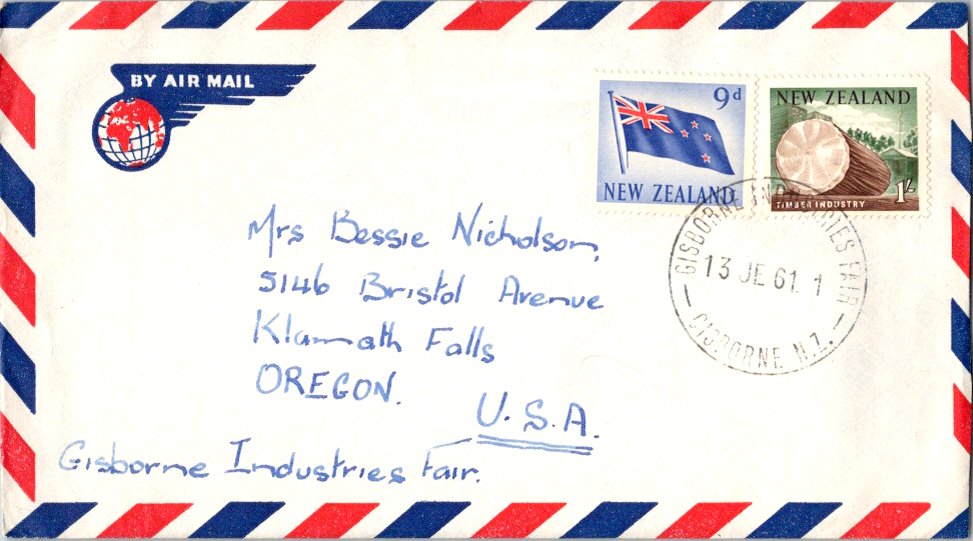 BY AIR MAIL
9d
NEW ZEALAND
NEW ZEALAND
1/-
TIMBER INDUSTRY
GISBORNE INDUSTRIES FAIR
13 JE 61 1
GISBORNE N.Z.
Mrs Bessie Nicholson,
5146 Bristol Avenue
Klamath Falls
OREGON.
U.S.A.
Gisborne Industries Fair.